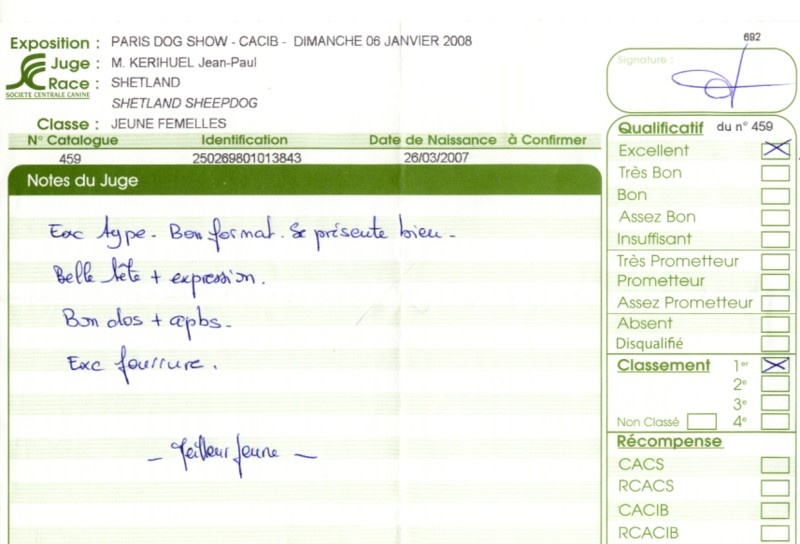 Exposition : PARIS DOG SHOW - CACIB - DIMANCHE 06 JANVIER 2008
Juge : M. KERIHUEL Jean-Paul
Race : SHETLAND
SOCIETE CENTRALE CANINE
SHETLAND SHEEPDOG
Classe : JEUNE FEMELLES
N° Catalogue Identification Date de Naissance à Confirmer
459 250269801013843 26/03/2007
Notes du Juge
Exc type - Bon format. Se présente bien -
Belle tête + expression.
Bon dos + apbs -
Exc fourrure.
- Meilleur Jeune -
692
Signature :
Qualificatif du n° 459
Excellent
Très Bon
Bon
Assez Bon
Insuffisant
Très Prometteur
Prometteur
Assez Prometteur
Absent
Disqualifié
Classement 1er
2e
3e
Non Classé 4e
Récompense
CACS
RCACS
CACIB
RCACIB